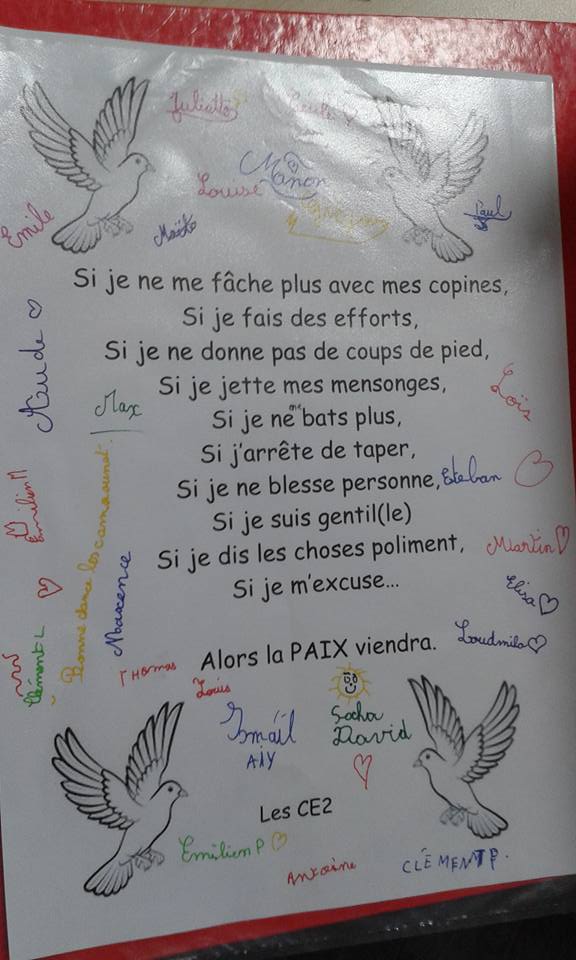 Juliette
Manon
Louise
Paul
Emile
Si je ne me fâche plus avec mes copines,
Si je fais des efforts,
Si je ne donne pas de coups de pied,
Si je jette mes mensonges,
Si je ne me bats plus,
Si j'arrête de taper,
Si je ne blesse personne,
Si je suis gentil(le)
Si je dis les choses poliment,
Si je m'excuse...
Alors la PAIX viendra.
Maude
Max
Loïs
Esteban
Emilien M
Martin
Maxence
Elisa
Loudmila
Clément L
THomas
Louis
Ismáïl
AIY
Sacha
David
Les CE2
Emilien P
Antoine
CLÉMENT P.